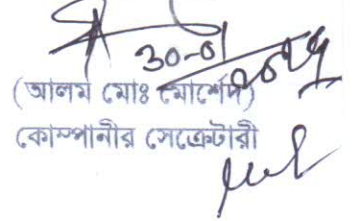 30-01
(আলম মোঃ মোর্শেদ)
কোম্পানীর সেক্রেটারী